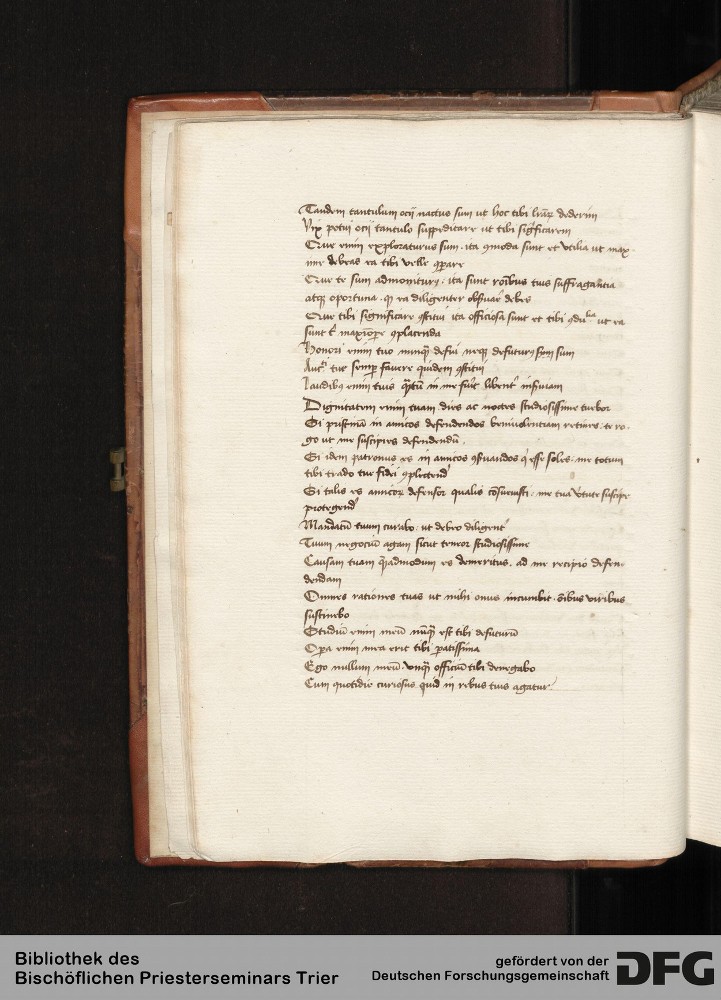 Tandem tantulum ocij nactus sum ut hoc tibi lr̄aꝝ dederim
Vix potui ocij tantulo suppeditare ut tibi sig̅ficarem
Que enim exploraturus sum ita ꝯmoda sunt et utilia ut max
ime debeas ea tibi velle ꝑare
Que te sum admoniturꝯ ita sunt roībus tuis suffragantia
atqꝫ oportuna ea diligenter obsuar̄ debes
Que tibi significare ꝯstitui ita officiosa sunt et tibi ut ea
sunt maxīoꝑe ꝯplacenda
Honori enim tuo nunqꝫ defui neqꝫ defuturꝯ sum
tue semꝑ favere quidem ꝯstitui
Laudibꝯ enim tuis in me libent̄
Dignitatem enim tuam dies ac noctes studiosissime tuebor
Si pristinā in amicos defendendos benivolentiam retines te ro
go ut me suscipies defendendū
Si idem patronus es in amicos ꝯsuandos qͥ esse soles me totum
tibi trado tue fidei ꝯplectend
Si talis es amicoꝝ defensor qualis cōsuevisti me tua v̄tute suscipe
protegend
Mandatū tuum curabo ut debeo diligent̄
Tuum negociū agam sicut teneor studiosissime
Causam tuam qͣadmodum es demeritus ad me recipio defen
dendam
Omnes rationes tuas ut mihi onus incumbit oībus viribus
sustinebo
Studiū enim meū nūqꝫ est tibi defuturū
Oꝑa enim mea erit tibi ꝑatissima
Ego nullum meū unqꝫ officiū tibi denegabo
Cum quotidie curiosus quid in rebus tuis agatur
Bibliothek des
Bischöflichen Priesterseminars Trier
gefördert von der
Deutschen Forschungsgemeinschaft
DFG